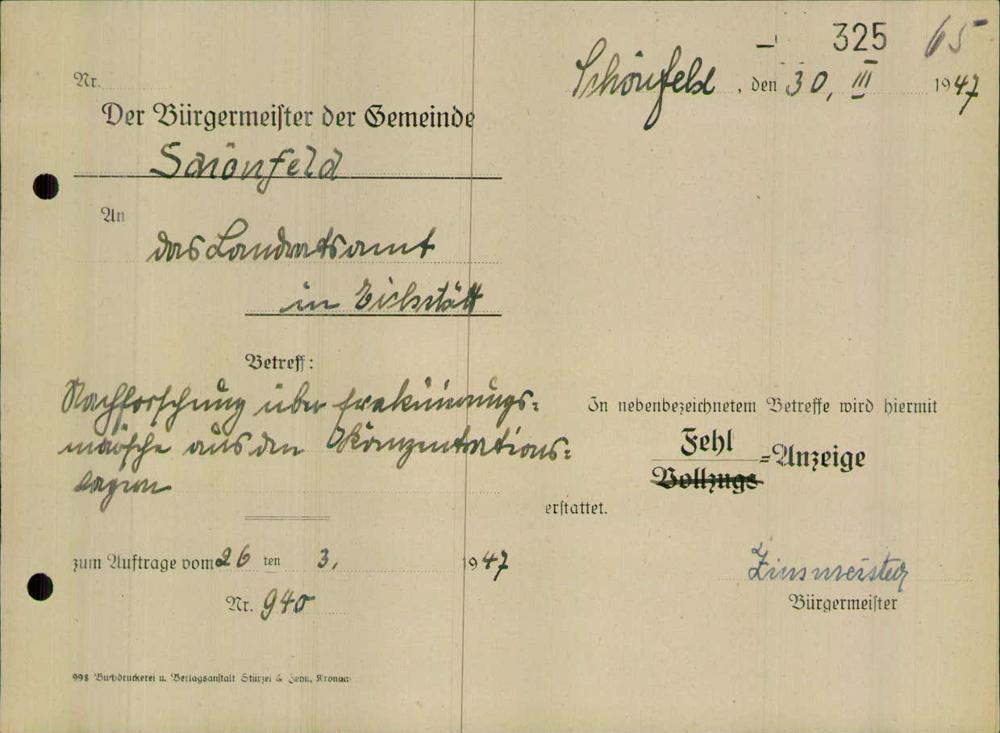 325 65
Nr.
Schönfeld, den 30. III 1947
Der Bürgermeister der Gemeinde
Schönfeld
An
das Landratsamt
in Eichstätt
Betreff:
Nachforschung über Evakuierungs-
märsche aus den Konzentrations-
lagern
In nebenbezeichnetem Betreffe wird hiermit
Fehl
Vollzugs
=Anzeige
erstattet.
zum Auftrage vom 26 ten 3. 1947
Nr. 940
Zinsmeister
Bürgermeister
998 Buchdruckerei u. Verlagsanstalt Stürzel & Kronach